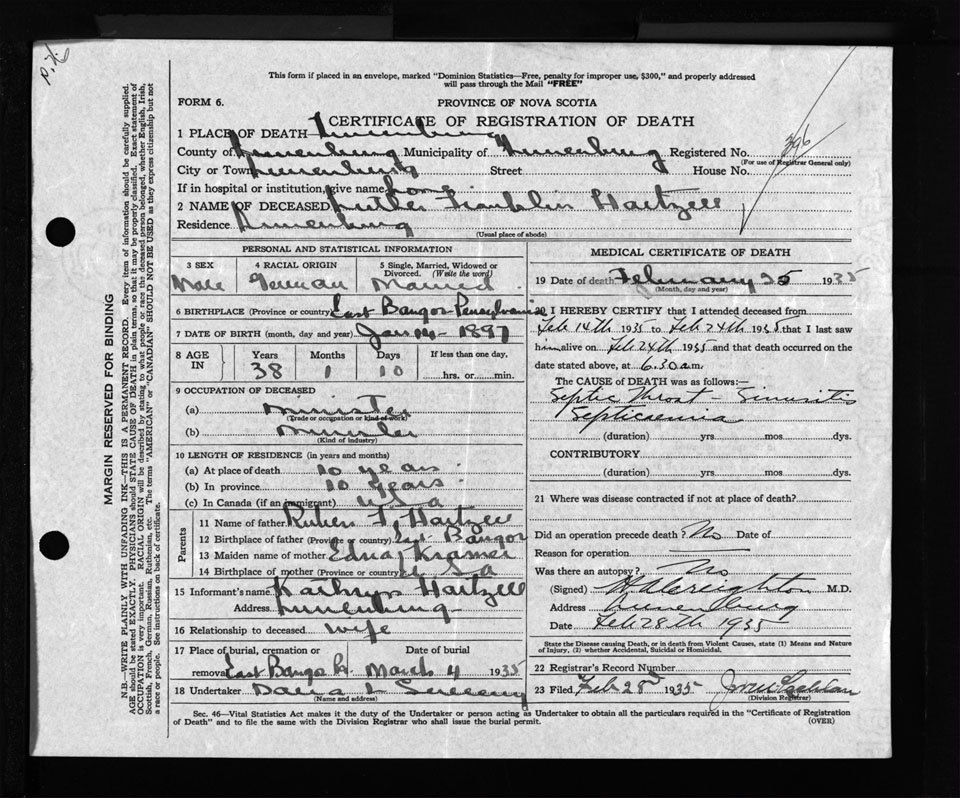 P.X.
This form if placed in an envelope, marked "Dominion Statistics—Free, penalty for improper use, $300," and properly addressed
will pass through the Mail "FREE"
FORM 6.
PROVINCE OF NOVA SCOTIA
CERTIFICATE OF REGISTRATION OF DEATH
1 PLACE OF DEATH Lunenburg
County of Lunenburg Municipality of Lunenburg Registered No. 396
(For use of Registrar General only)
City or Town Lunenburg Street House No.
If in hospital or institution, give name home
2 NAME OF DECEASED Luther Franklin Hartzell
Residence Lunenburg
(Usual place of abode)
PERSONAL AND STATISTICAL INFORMATION
3 SEX 4 RACIAL ORIGIN 5 Single, Married, Widowed or Divorced. (Write the word)
Male German Married
6 BIRTHPLACE (Province or country) East Bangor Pensylvania
7 DATE OF BIRTH (month, day and year) Jan 14 - 1897
8 AGE IN Years Months Days If less than one day,
38 1 10 hrs. or min.
9 OCCUPATION OF DECEASED
(a) minister
(Trade or occupation or kind of work)
(b) minister
(Kind of industry)
10 LENGTH OF RESIDENCE (in years and months)
(a) At place of death 10 years
(b) In province 10 years
(c) In Canada (if an immigrant) U S a
Parents
11 Name of father Ruben F. Hartzell
12 Birthplace of father (Province or country) East Bangor
13 Maiden name of mother Edna Kramer
14 Birthplace of mother (Province or country) U S a
15 Informant's name Kathryn Hartzell
Address Lunenburg
16 Relationship to deceased wife
17 Place of burial, cremation or removal Date of burial
East Bangor Pa. March 4 1935
18 Undertaker
(Name and address)
MEDICAL CERTIFICATE OF DEATH
19 Date of death February 25 1935
(Month, day and year)
I HEREBY CERTIFY that I attended deceased from
Feb 14th 1935 to Feb 24th 1935 that I last saw
him alive on Feb 24th 1935 and that death occurred on the
date stated above, at 6.30 a.m.
The CAUSE OF DEATH was as follows:—
Septic Throat - Sinusitis
Septicaemia
(duration) yrs mos. dys.
CONTRIBUTORY
(duration) yrs. mos. dys.
21 Where was disease contracted if not at place of death?
Did an operation precede death? No Date of
Reason for operation
Was there an autopsy? No
(Signed) H A Creighton M.D.
Address Lunenburg
Date Feb 28th 1935
State the Disease causing Death, or in death from Violent Causes, state (1) Means and Nature
of Injury, (2) whether Accidental, Suicidal or Homicidal.
22 Registrar's Record Number
23 Filed Feb 28th 1935
(Division Registrar)
Sec. 46—Vital Statistics Act makes it the duty of the Undertaker or person acting as Undertaker to obtain all the particulars required in the "Certificate of Registration
of Death" and to file the same with the Division Registrar who shall issue the burial permit. (OVER)
MARGIN RESERVED FOR BINDING
N.B.—WRITE PLAINLY WITH UNFADING INK—THIS IS A PERMANENT RECORD. Every item of information should be carefully supplied.
AGE should be stated EXACTLY. PHYSICIANS should STATE CAUSE OF DEATH in plain terms, so that it may be properly classified. Exact statement of
OCCUPATION is very important. RACIAL ORIGIN will be described by stating to what people or race the deceased person belonged, whether English, Irish,
Scottish, French, German, Russian, Ruthenian, etc. The terms "AMERICAN" or "CANADIAN" SHOULD NOT BE USED as they express citizenship but not
a race or people. See instructions on back of certificate.